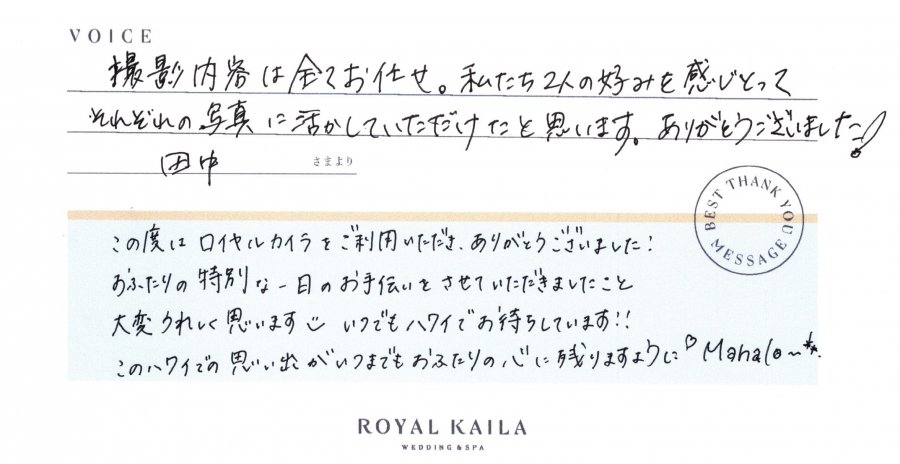 VOICE
撮影内容は全てお任せ。私たち2人の好みを感じとって
それぞれの写真に活かしていただけたと思います。ありがとうございました!
田中 さまより
BEST THANK YOU MESSAGE
この度はロイヤルカイラをご利用いただき、ありがとうございました!
おふたりの特別な一日のお手伝いをさせていただきましたこと
大変うれしく思います いつでもハワイでお待ちしています!!
このハワイでの思い出がいつまでもおふたりの心に残りますように♡ Mahalo~**.
ROYAL KAILA
WEDDING & SPA